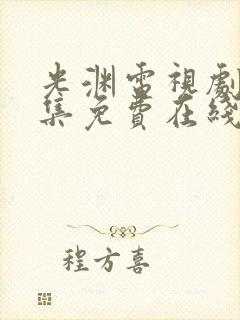 光渊電視劇
集免費在綫
程方喜